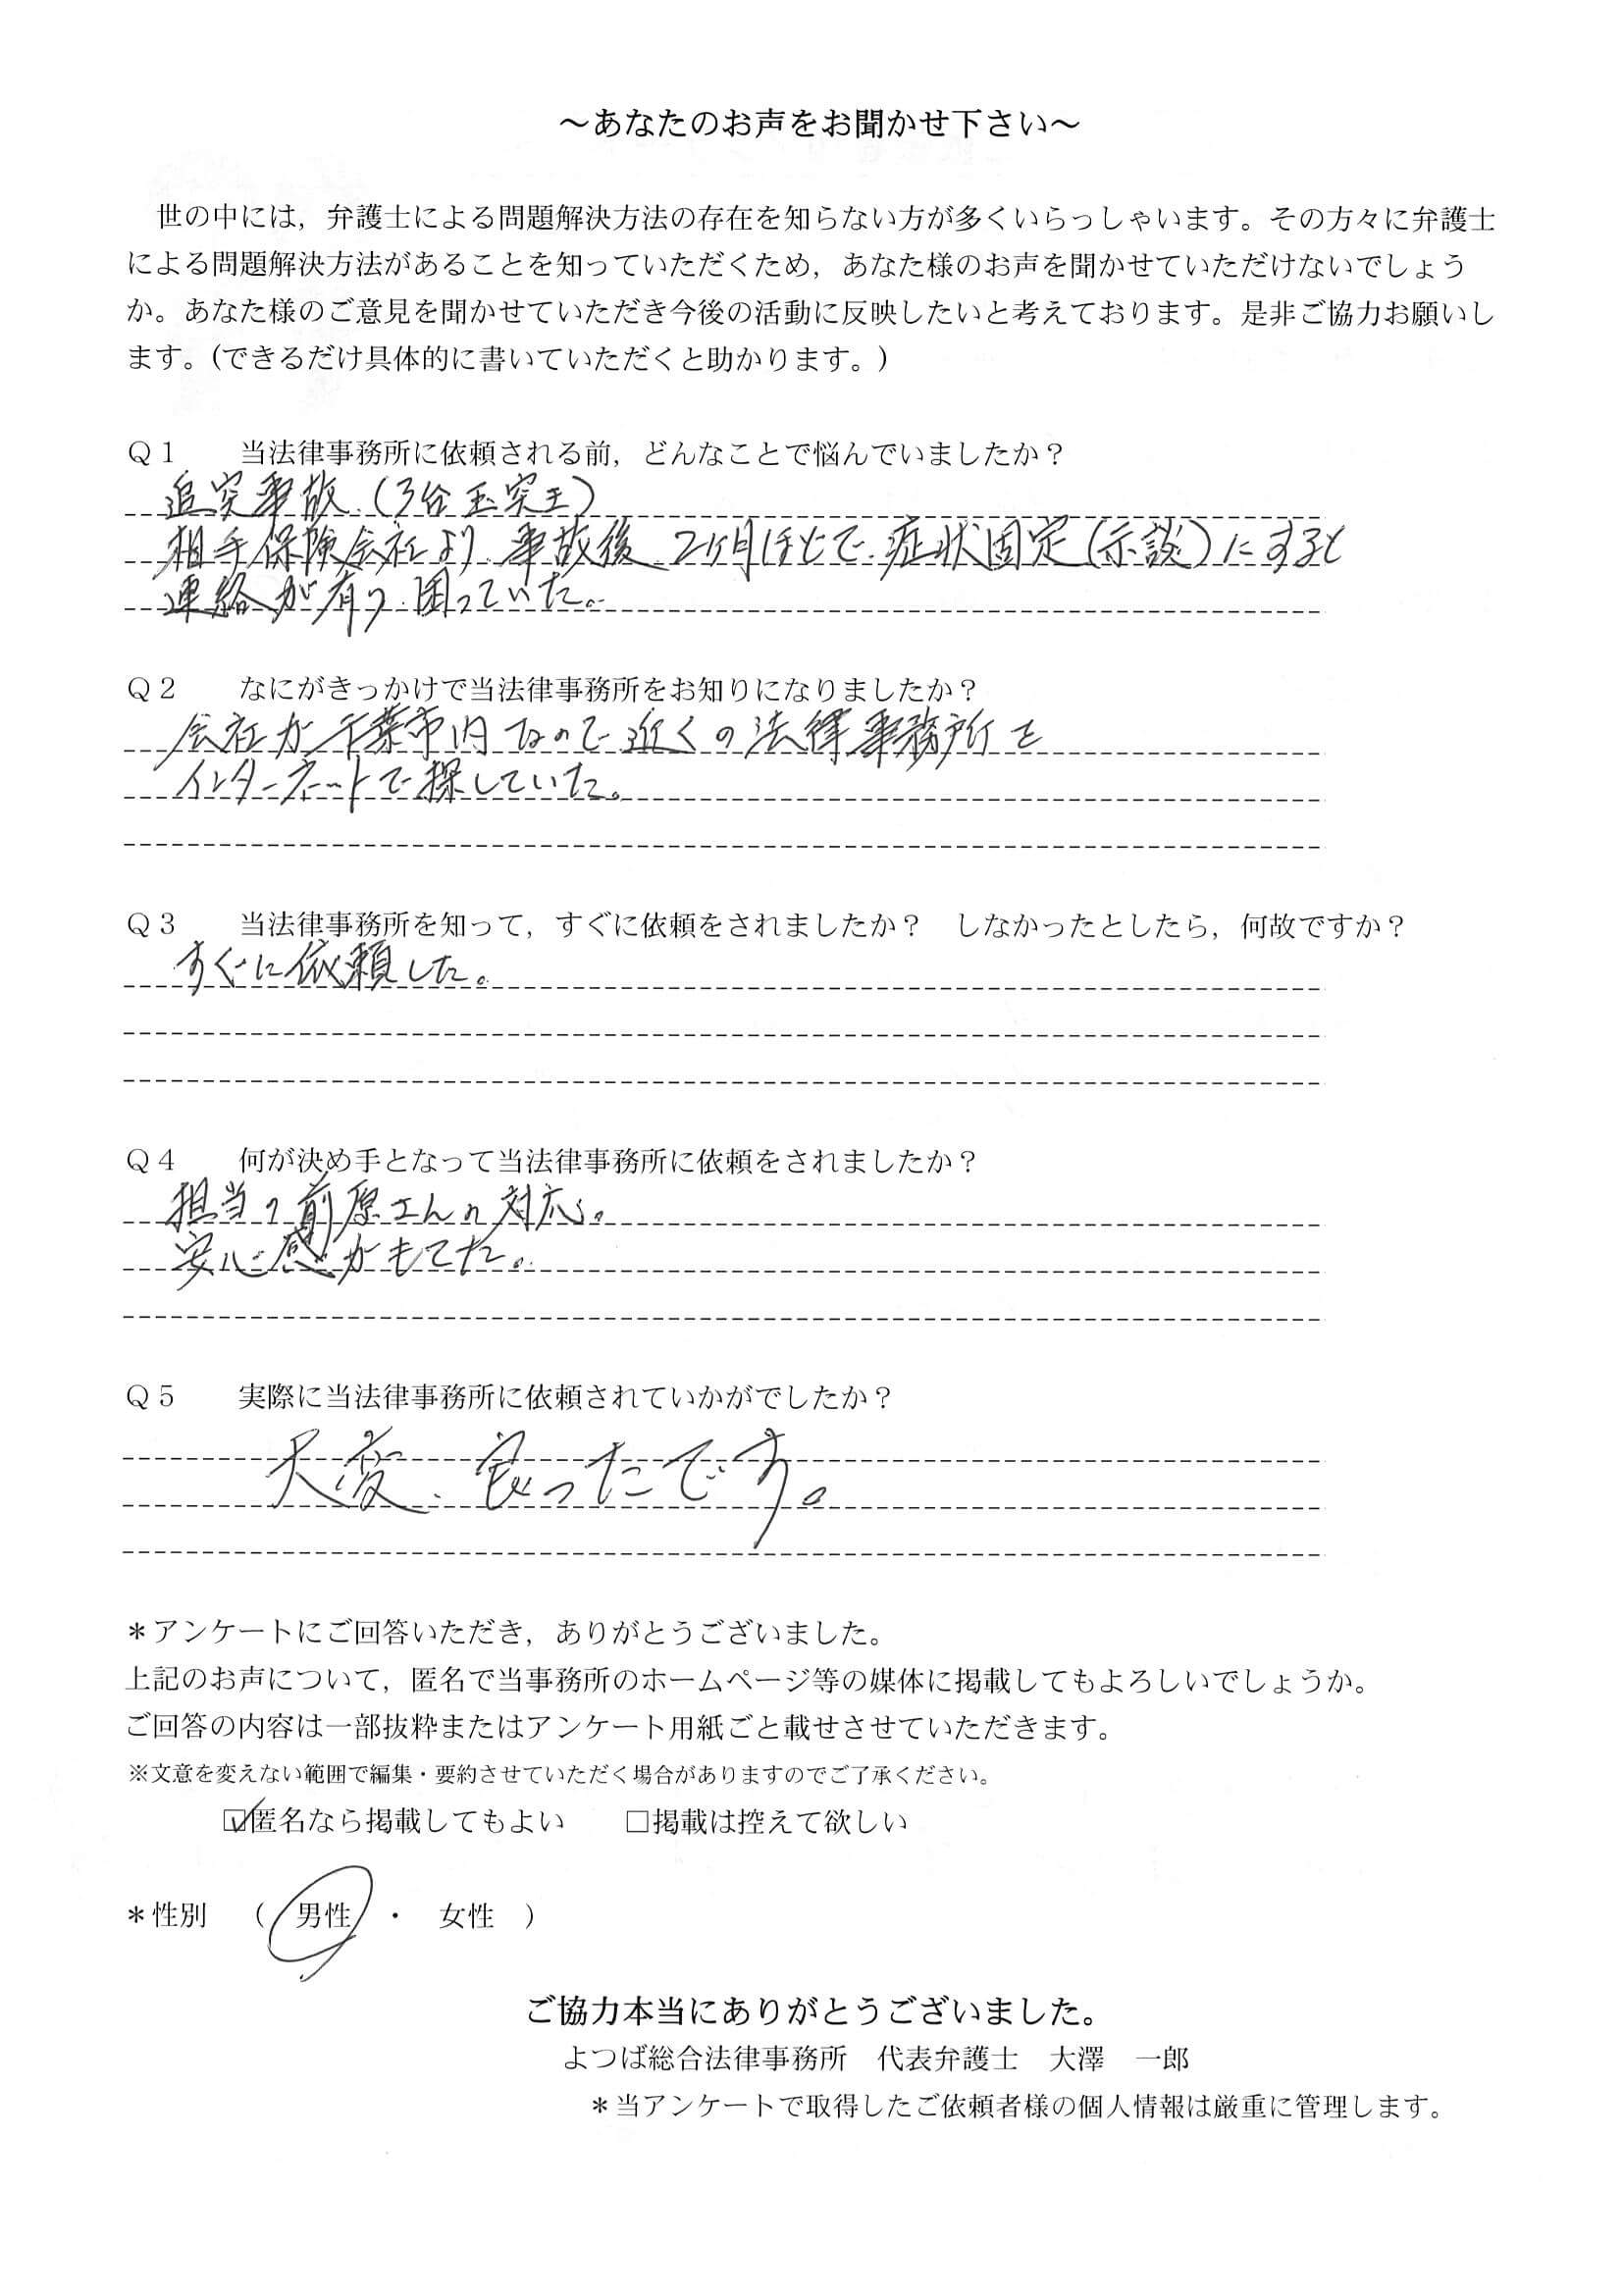 ～あなたのお声をお聞かせ下さい～
世の中には，弁護士による問題解決方法の存在を知らない方が多くいらっしゃいます。その方々に弁護士
による問題解決方法があることを知っていただくため，あなた様のお声を聞かせていただけないでしょう
か。あなた様のご意見を聞かせていただき今後の活動に反映したいと考えております。是非ご協力お願いし
ます。(できるだけ具体的に書いていただくと助かります。)
Ｑ１　当法律事務所に依頼される前，どんなことで悩んでいましたか？
追突事故.(3台玉突き)
相手保険会社より、事故後、2ヶ月ほどで、症状固定(示談)にすると
連絡が有り、困っていた。
Ｑ２　なにがきっかけで当法律事務所をお知りになりましたか？
会社が千葉市内なので近くの法律事務所を
インターネットで探していた。
Ｑ３　当法律事務所を知って，すぐに依頼をされましたか？　しなかったとしたら，何故ですか？
すぐに依頼した。
Ｑ４　何が決め手となって当法律事務所に依頼をされましたか？
担当の前原さんの対応。
安心感がもてた。
Ｑ５　実際に当法律事務所に依頼されていかがでしたか？
大変、良ったです。
＊アンケートにご回答いただき，ありがとうございました。
上記のお声について，匿名で当事務所のホームページ等の媒体に掲載してもよろしいでしょうか。
ご回答の内容は一部抜粋またはアンケート用紙ごと載せさせていただきます。
※文意を変えない範囲で編集・要約させていただく場合がありますのでご了承ください。
☑匿名なら掲載してもよい　□掲載は控えて欲しい
＊性別　（　男性　・　女性　）
ご協力本当にありがとうございました。
よつば総合法律事務所　代表弁護士　大澤　一郎
＊当アンケートで取得したご依頼者様の個人情報は厳重に管理します。